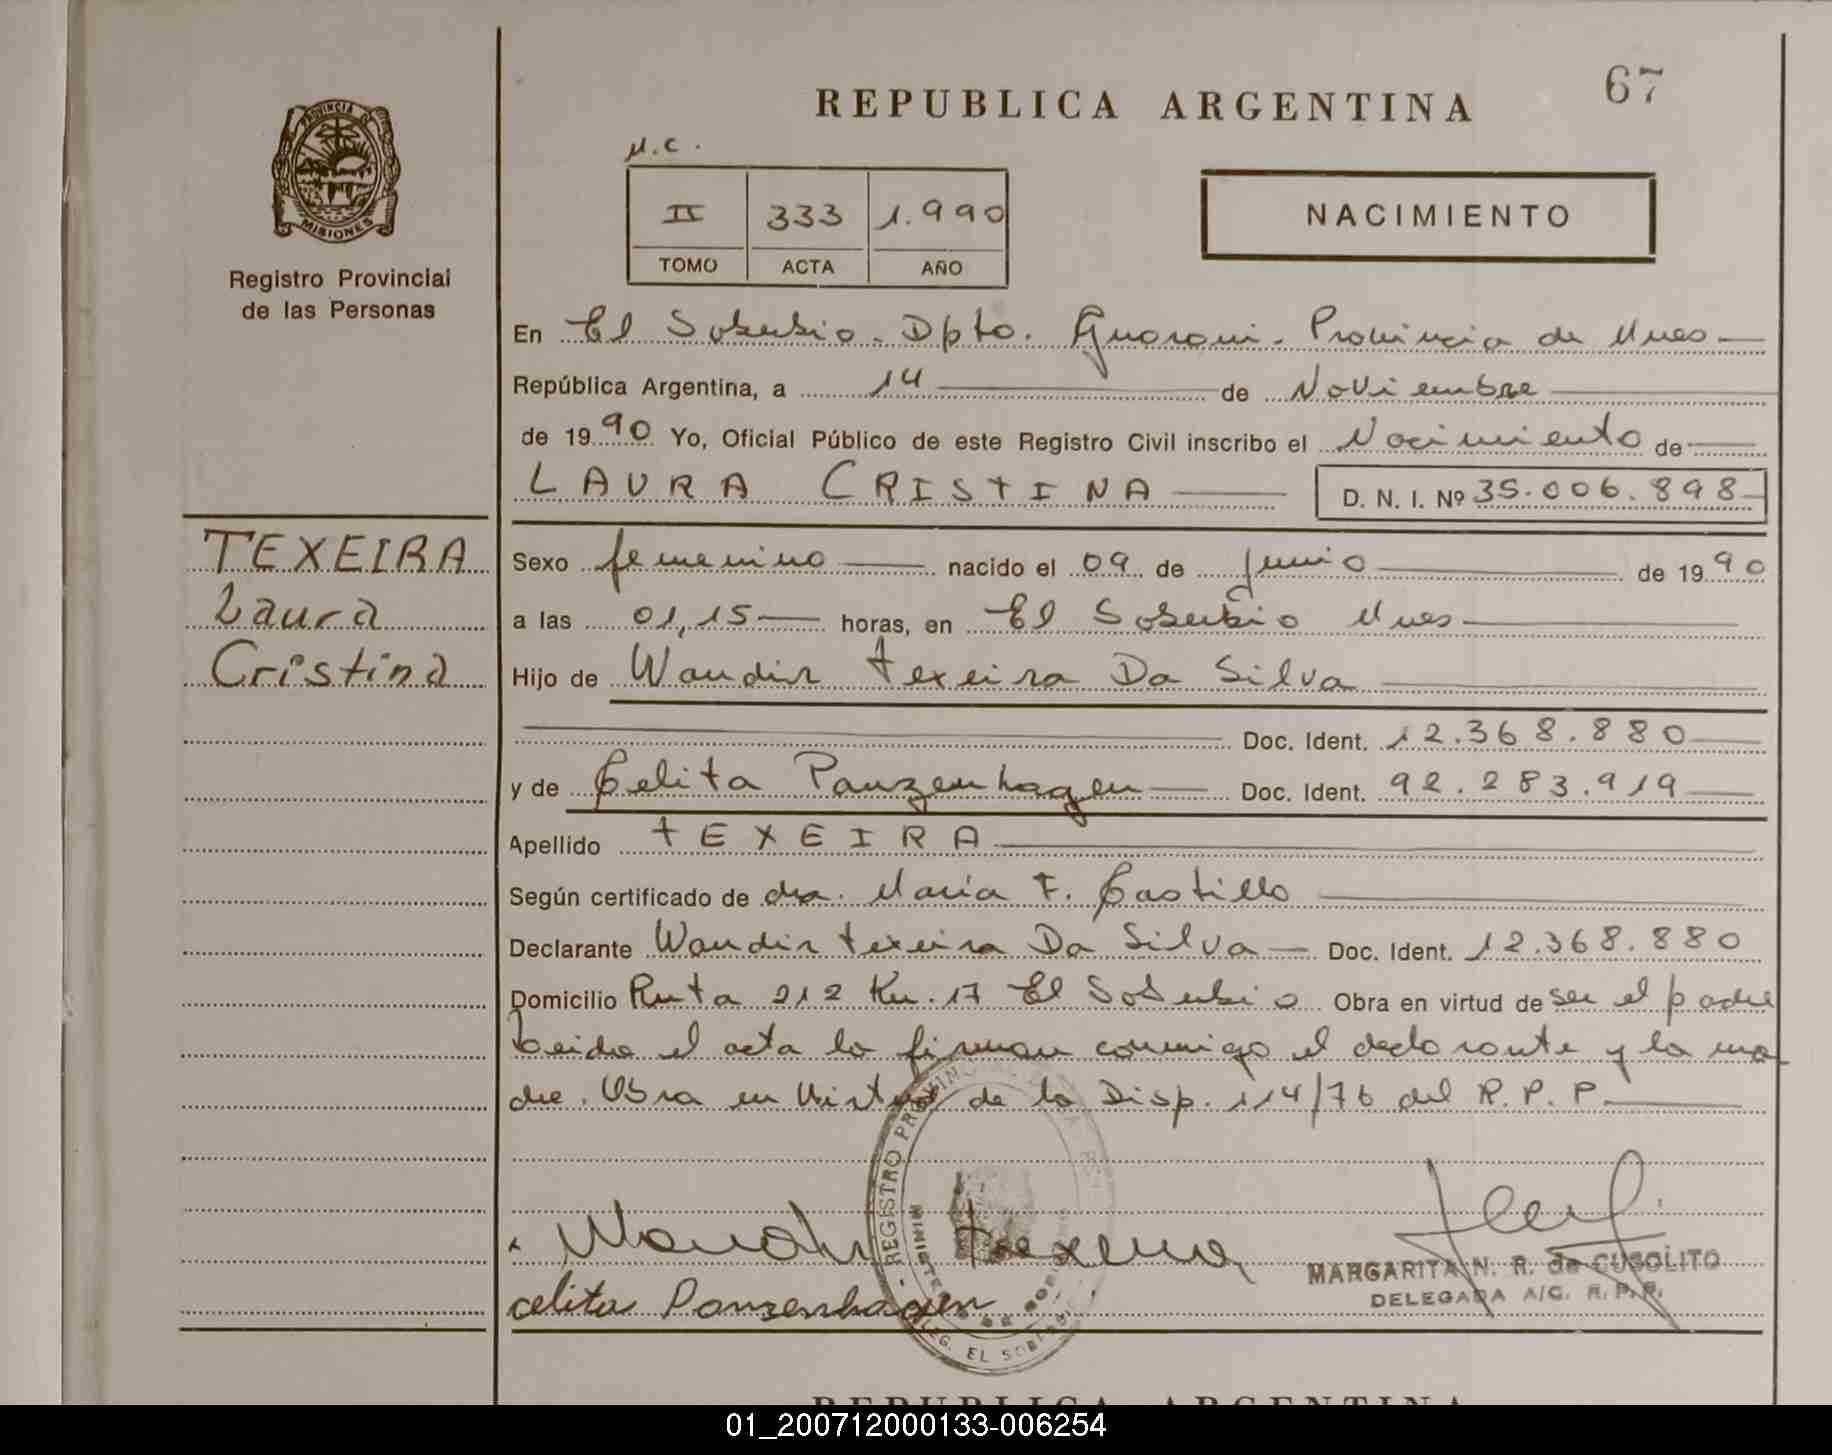 67
REPUBLICA ARGENTINA
PROVINCIA DE
MISIONES
Registro Provincial
de las Personas
M.C.
II 333 1.990
TOMO ACTA AÑO
NACIMIENTO
En El Soberbio. Dpto. Guarani. Provincia de Mnes
República Argentina, a 14 de Noviembre
de 1990 Yo, Oficial Público de este Registro Civil inscribo el Nacimiento de
LAURA CRISTINA D. N. I. Nº 35.006.898
TEXEIRA
Laura
Cristina
Sexo femenino nacido el 09 de junio de 1990
a las 01,15 horas, en El Soberbio Mnes
Hijo de Wandir Texeira Da Silva
Doc. Ident. 12.368.880
y de Celita Panzenhagen Doc. Ident. 92.283.919
Apellido TEXEIRA
Según certificado de dra. Maria F. Castillo
Declarante Wandir Texeira Da Silva Doc. Ident. 12.368.880
Domicilio Ruta 212 Km. 17 El Soberbio Obra en virtud de ser el padre
Leida el acta la firman conmigo el declarante y la ma
dre. Obra en Virtud de la Disp. 114/76 del R.P.P.
REGISTRO PROVINCIAL DE LA
DELEG. EL SOBERBIO
Wandir Texeira
celita Panzenhagen
MARGARITA N. R. de CUSOLITO
DELEGADA A/C. R.P.P.
REPUBLICA ARGENTINA
01_200712000133-006254